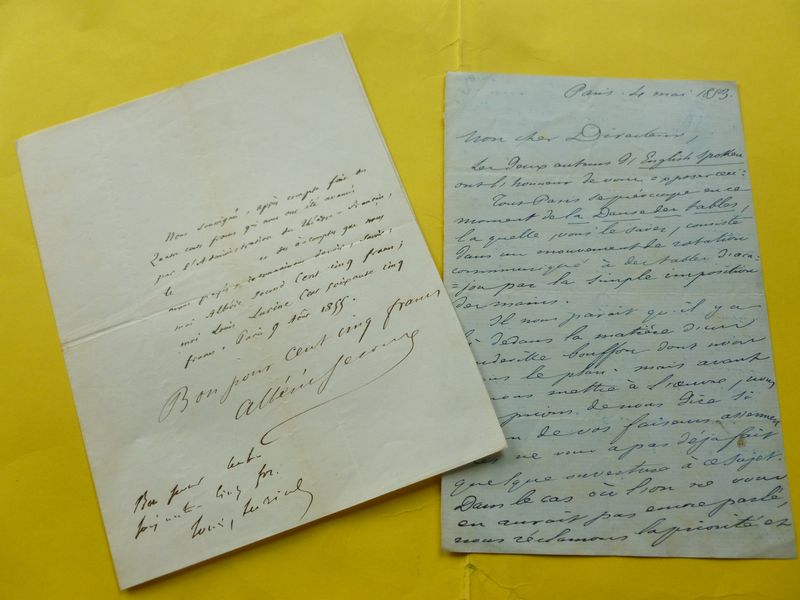 Nous soussignés, après compte fait des
Quatre cents francs qui nous ont été avancé
par l'Administration du Théâtre-
le et des àcomptes que nous
nous
moi Albéric Second Cent cinq francs;
moi Louis Lurine Cent soixante cinq
francs. Paris 9 Août 1855.
Bon pour cent cinq francs
Albéric Second
Bon pour cent
soixante cinq fr.
Louis Lurine
Paris 4 mai 1853.
Mon cher Directeur,
Les deux auteurs d'English spoken
ont l'honneur de vous exposer ceci:
Tout Paris se préoccupe en ce
moment de la Danse des tables,
laquelle, vous le savez, consiste
dans un mouvement de rotation
communiqué à des tables d'aca-
=jou par la simple imposition
des mains.
Il nous parait qu'il y a
là dedans la matière d'un
vaudeville bouffon dont nous
avons le plan. mais avant
de nous mettre à l'œuvre, nous
vous prions de nous dire si
l'un de vos faiseurs
ne vous a pas déja fait
quelque ouverture à ce sujet.
Dans le cas où l'on ne vous
en aurait pas encore parlé,
nous réclamons la priorité et